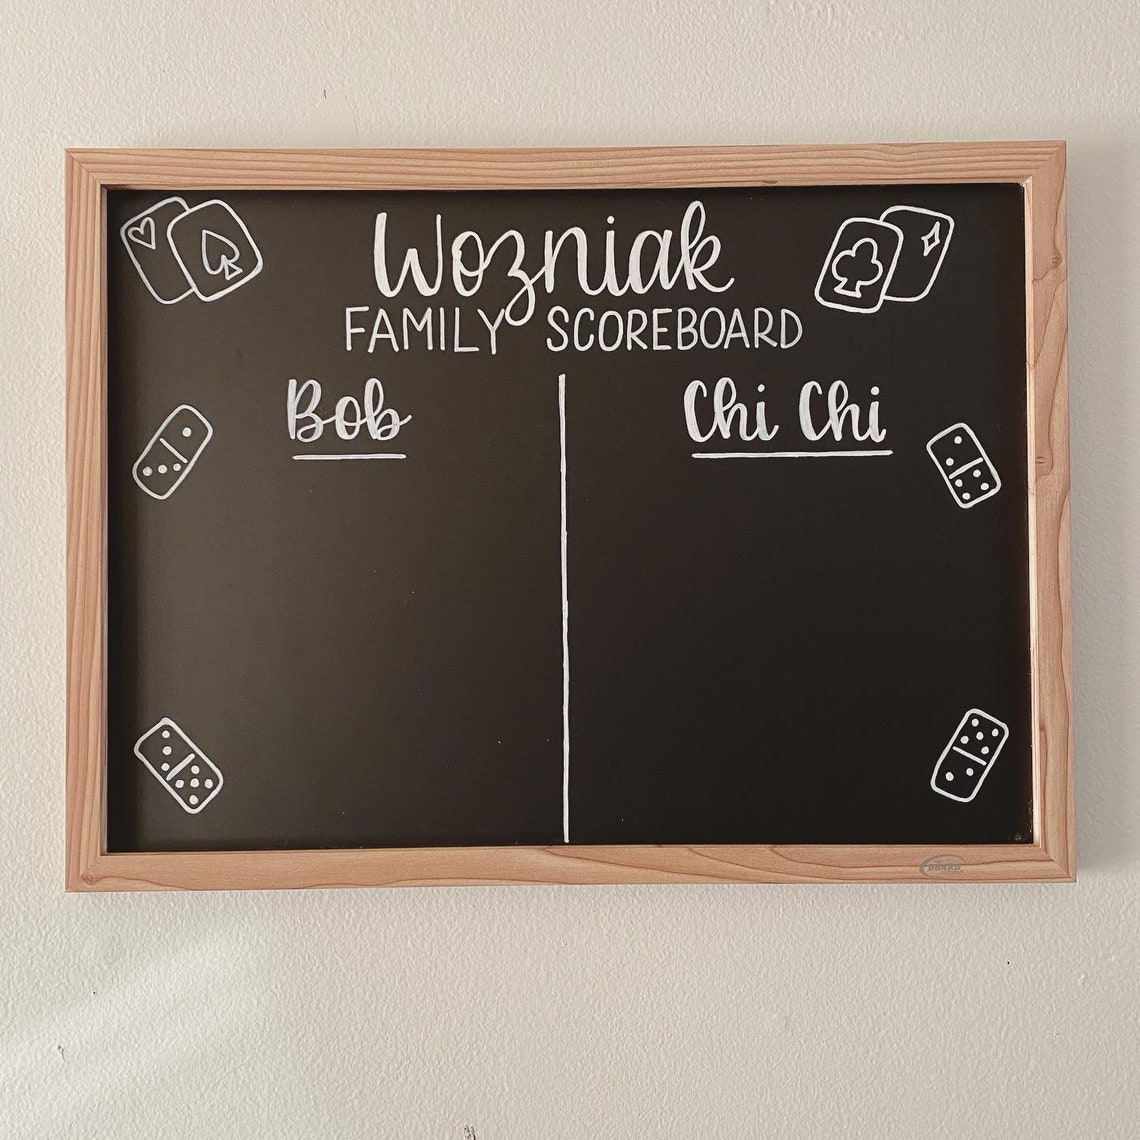 Wozniak
FAMILY SCOREBOARD
Bob
Chi Chi
BOARD